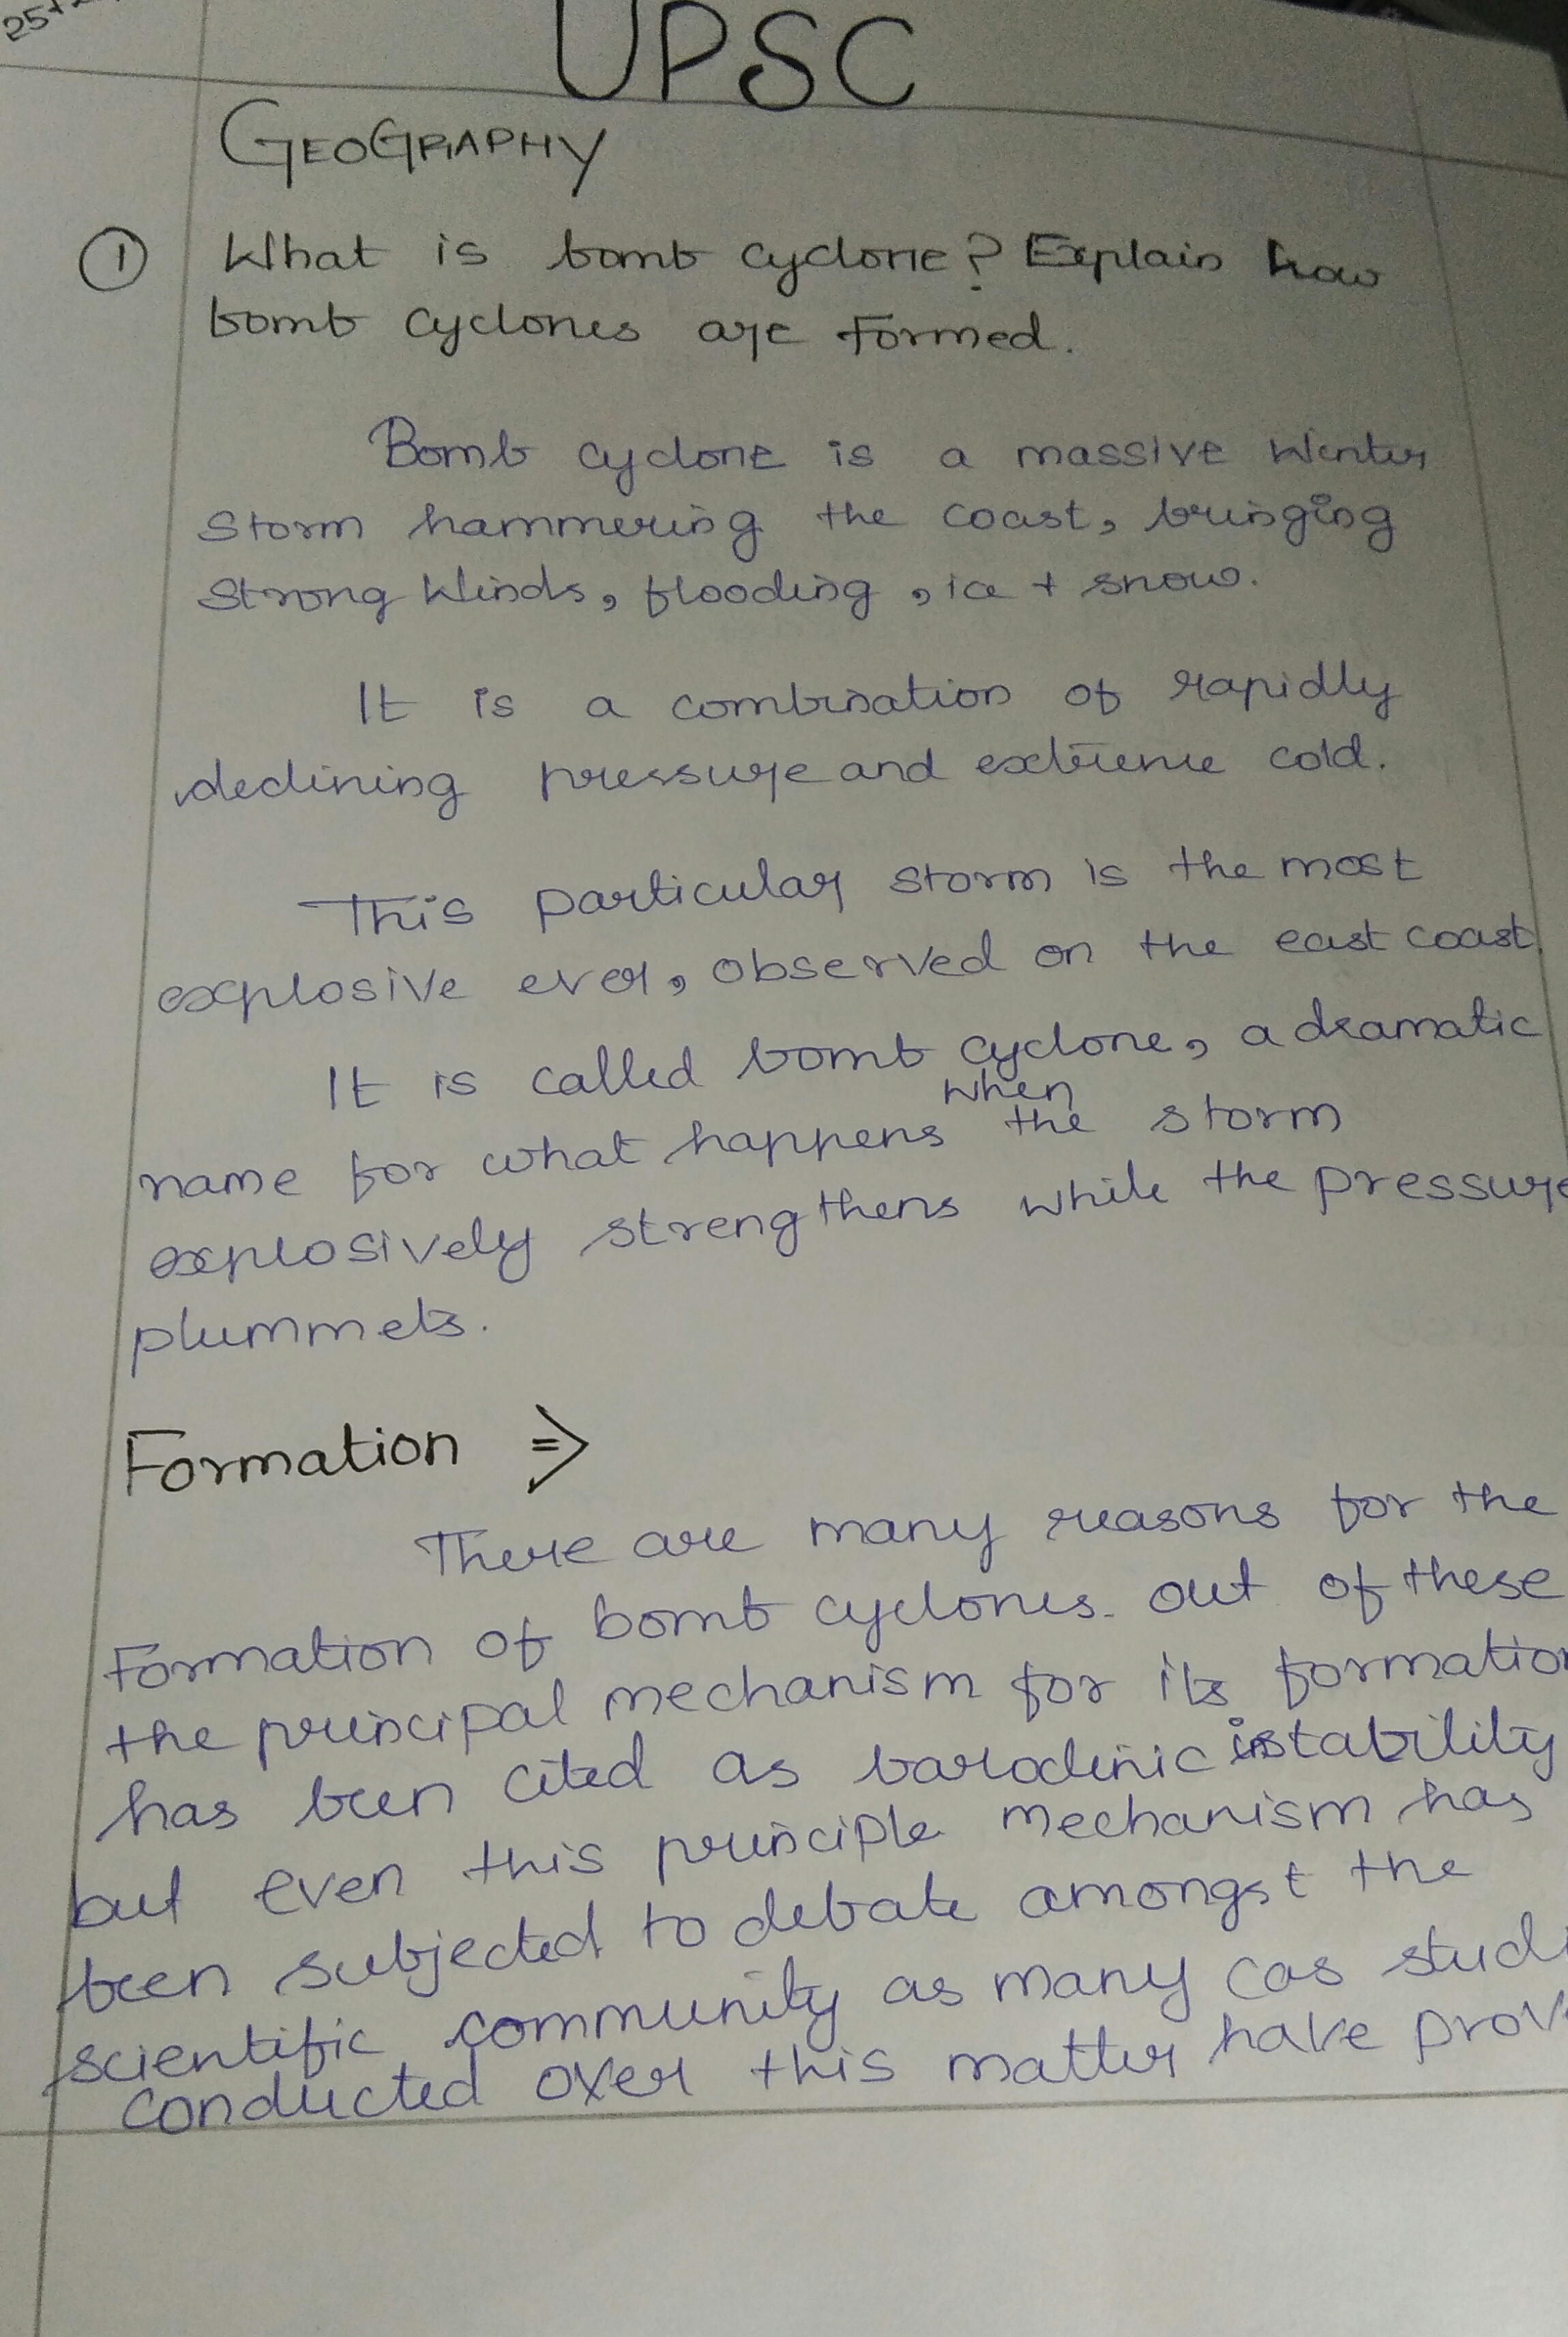 UPSC
GEOGRAPHY
① What is bomb cyclone? Explain how
bomb cyclones are formed.
Bomb cyclone is a massive Winter
storm hammering the coast, bringing
strong winds, flooding, ice + snow.
It is a combination of rapidly
declining pressure and extreme cold.
This particular storm is the most
explosive ever, observed on the east coast.
It is called bomb cyclone, a dramatic
name for what happens when the storm
explosively strengthens while the pressure
plummets.
Formation ⇒
There are many reasons for the
Formation of bomb cyclones. out of these
the principal mechanism for its formation
has been cited as baroclinic instability
but even this principle mechanism has
been subjected to debate amongst the
scientific community as many cas studi
conducted over this matter have prov